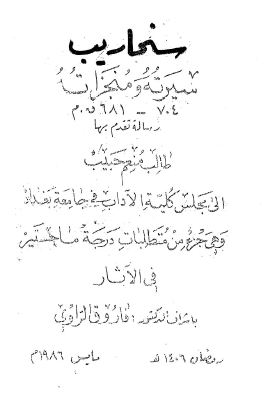 سنحاريب
سيرته ومنجزاته
٧٠٤ -- ٦٨١ ق.م
رسالة تقدم بها
طالب منعم حبيب
الى مجلس كلية الآداب في جامعة بغداد
وهي جزء من متطلبات درجة ماجستير
في الآثار
باشراف الدكتور: فاروق الراوي
رمضان ١٤٠٦ هـ مايس ١٩٨٦م